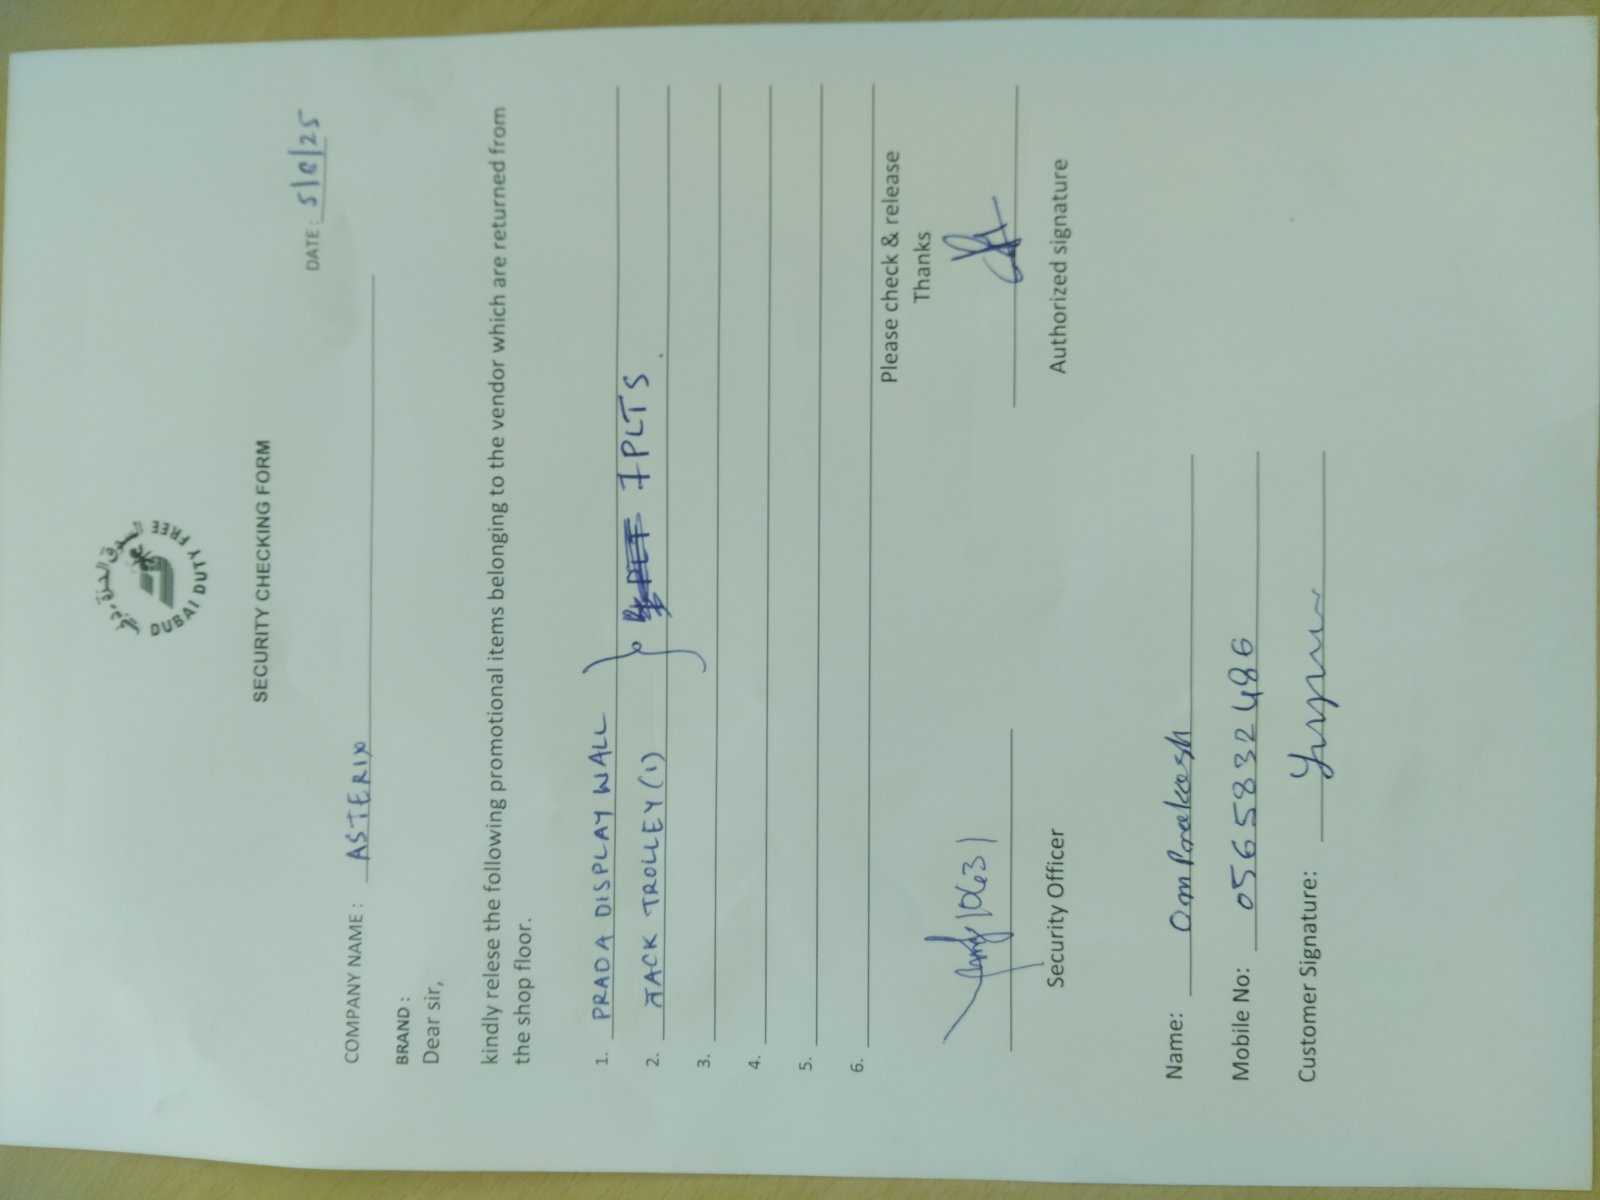 السوق الحرة دبي
DUBAI DUTY FREE
SECURITY CHECKING FORM
DATE : 5/8/25
COMPANY NAME : ASTERIX
BRAND :
Dear sir,
kindly relese the following promotional items belonging to the vendor which are returned from
the shop floor.
1. PRADA DISPLAY WALL
2. JACK TROLLEY (1) 7 PLTS
3.
4.
5.
6.
Please check & release
Thanks
10631
Security Officer
Authorized signature
Name: Om Prakash
Mobile No: 056 5832486
Customer Signature: